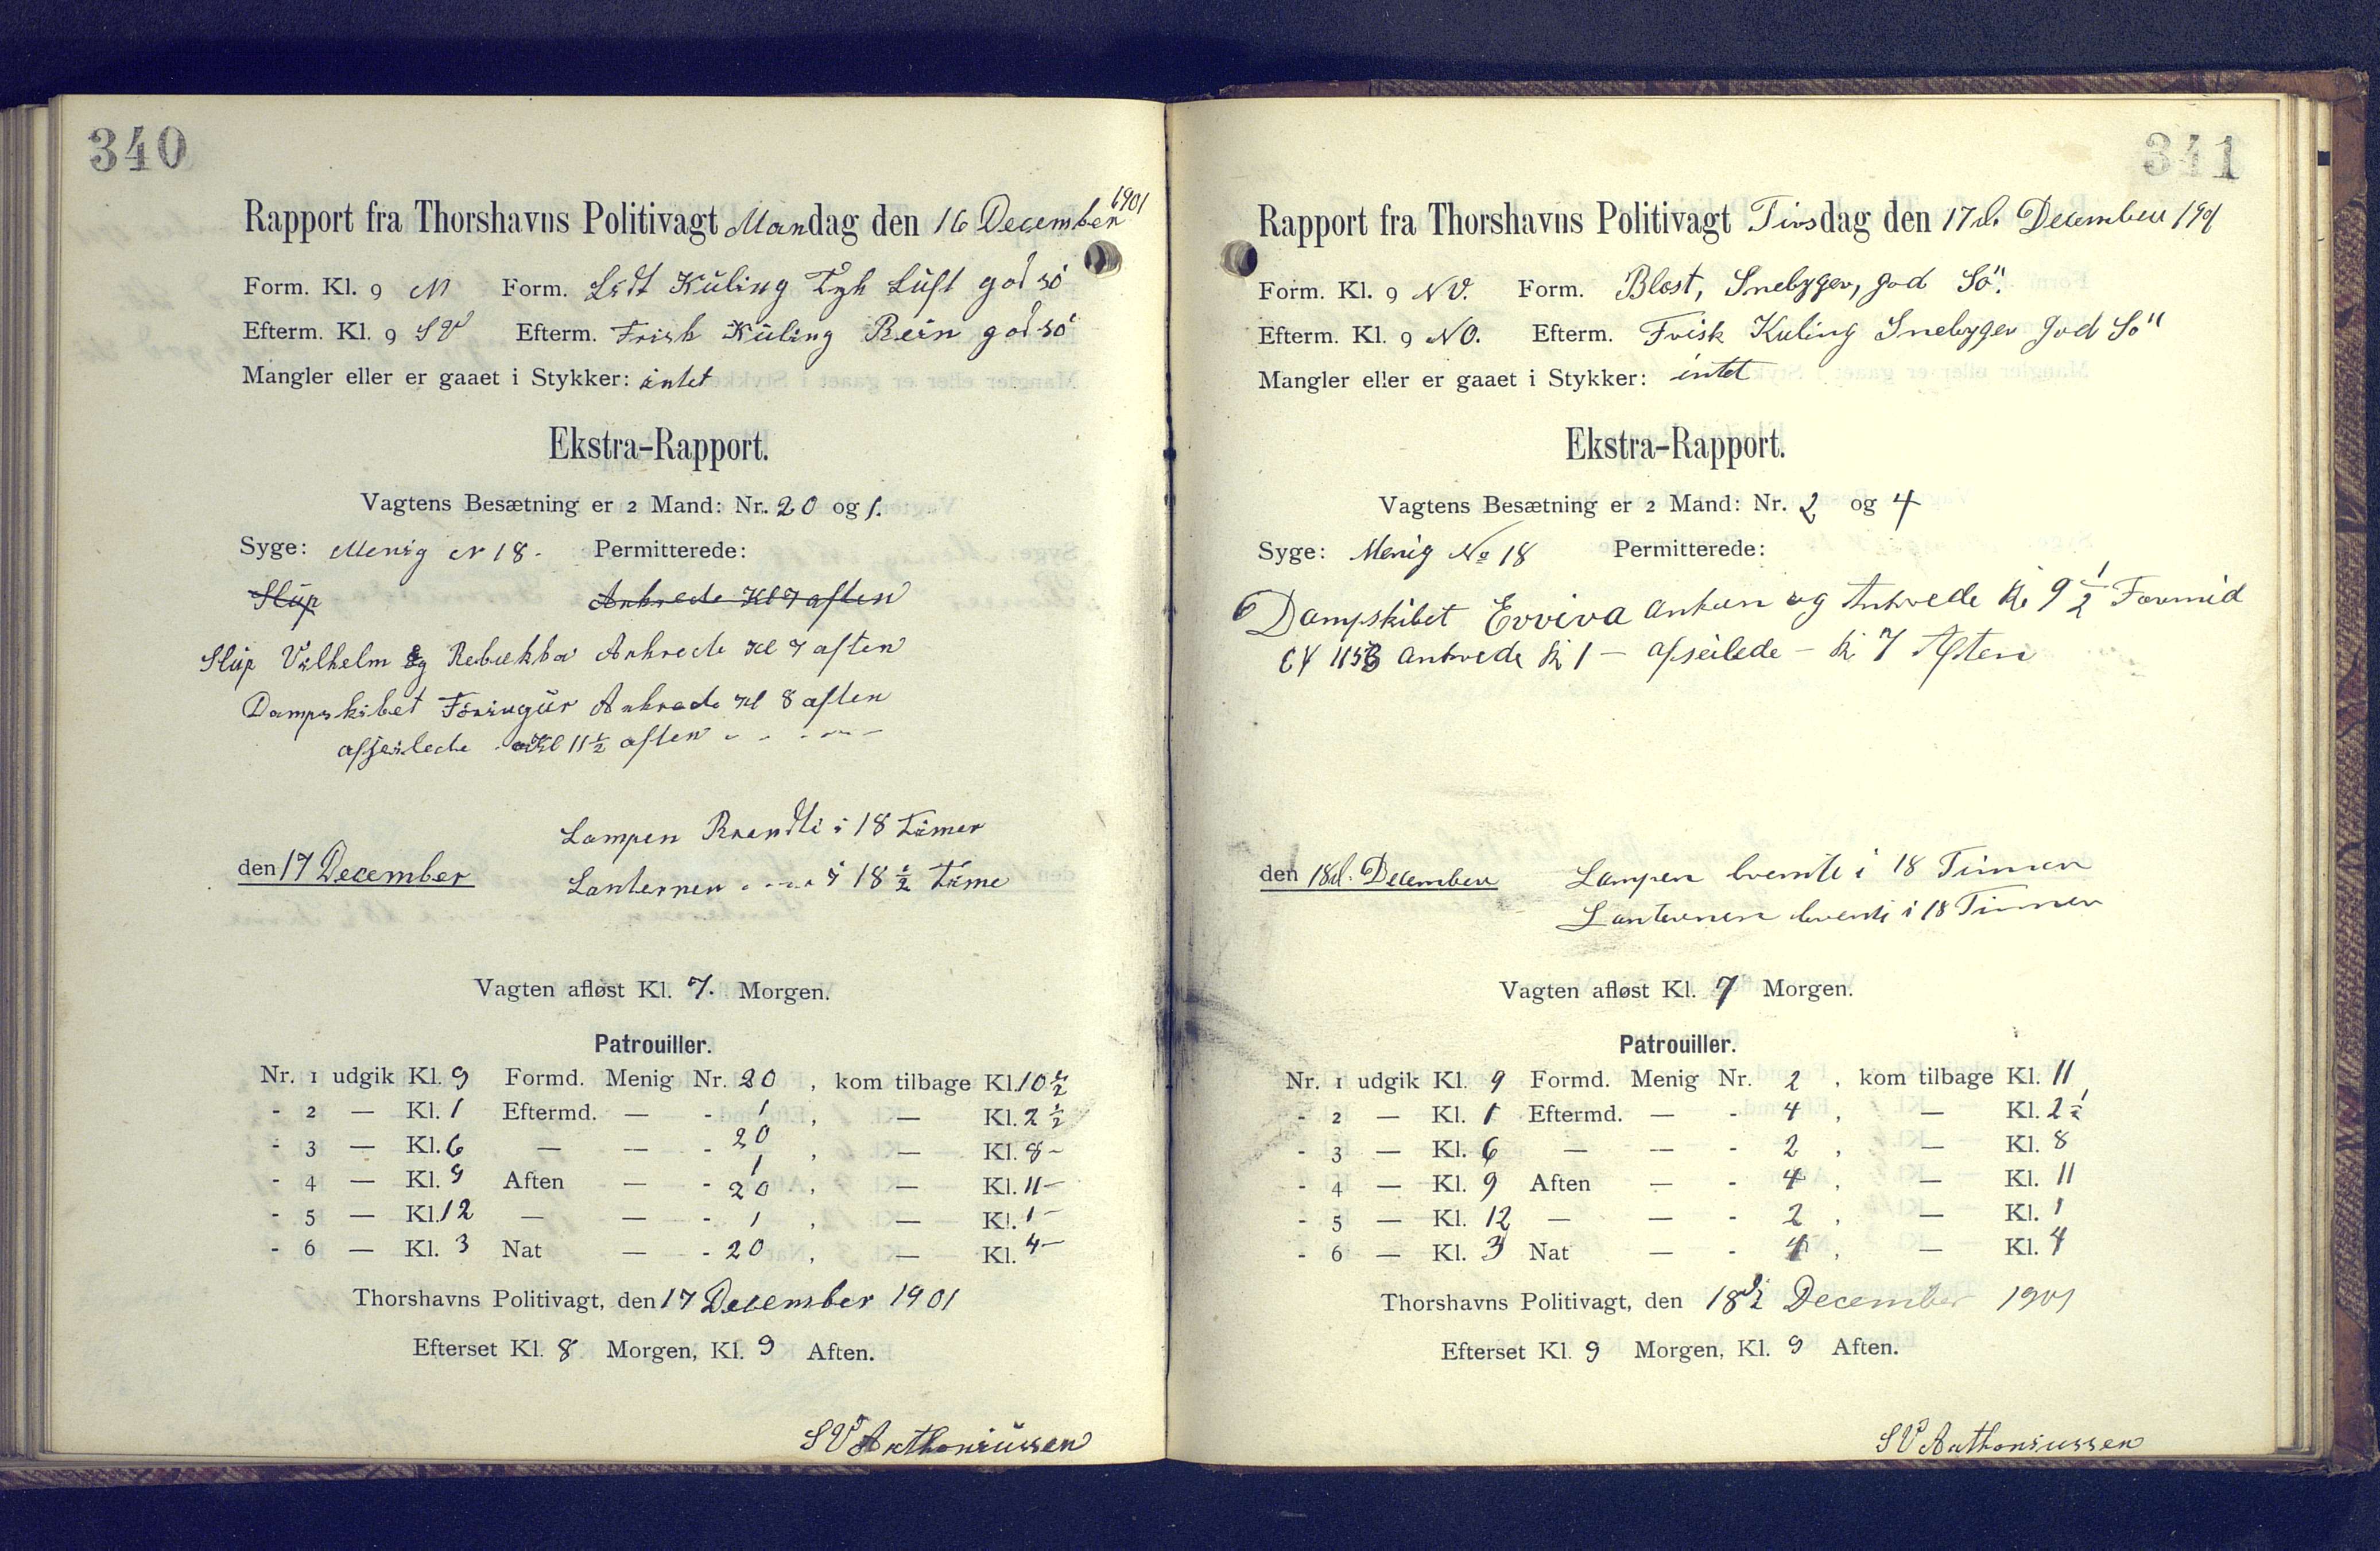 340
Rapport fra Thorshavns Politivagt Mandag den 16 December 1901
Form. Kl. 9 N Form. Lidt Küling Tyk Lüft god sö
Efterm. Kl. 9 SV Efterm. Frisk Küling Rein god sö
Mangler eller er gaaet i Stykker: intet
Ekstra-Rapport.
Vagtens Besætning er 2 Mand: Nr. 20 og 1.
Syge: Menig N 18. Permitterede:
Slüp Ankrede Kl 7 aften
Slüp Vilhelm og Rebekka Ankrede Kl 7 aften
Dampskibet Föringür Ankrede Kl 8 aften
afseilede Kl 11 1/2 aften
Lampen Brendte i 18 Timer
den 17 December Lanternen i 18 1/2 Time
Vagten afløst Kl. 7. Morgen.
Patrouiller.
Nr. 1 udgik Kl. 9 Formd. Menig Nr. 20, kom tilbage Kl. 10 1/2
- 2 — Kl. 1 Eftermd. — - 1, — Kl. 2 1/2
- 3 — Kl. 6 — — - 20, — Kl. 8 -
- 4 — Kl. 9 Aften — - 1 20, — Kl. 11 -
- 5 — Kl. 12 — — - 1, — Kl. 1 -
- 6 — Kl. 3 Nat — - 20, — Kl. 4 -
Thorshavns Politivagt, den 17 December 1901
Efterset Kl. 8 Morgen, Kl. 9 Aften.
SV Anthoniussen
341
Rapport fra Thorshavns Politivagt Tirsdag den 17d. December 1901
Form. Kl. 9 NV. Form. Blest, Snebyger, god Sö.
Efterm. Kl. 9 NO. Efterm. Frisk Kuling Snebyger God Sö
Mangler eller er gaaet i Stykker: intet
Ekstra-Rapport.
Vagtens Besætning er 2 Mand: Nr. 2 og 4
Syge: Menig No 18 Permitterede:
Dampskibet Evviva ankom og Ankrede Kl 9 1/2 Formid
1153 ankrede Kl 1 — afseilede — Kl 7 Aften
den 18d. December Lampen brente i 18 Timer
Lanternen brente i 18 Timer
Vagten afløst Kl. 7 Morgen.
Patrouiller.
Nr. 1 udgik Kl. 9 Formd. Menig Nr. 2, kom tilbage Kl. 11
- 2 — Kl. 1 Eftermd. — - 4, — Kl. 2 1/2
- 3 — Kl. 6 — — - 2, — Kl. 8
- 4 — Kl. 9 Aften — - 4, — Kl. 11
- 5 — Kl. 12 — — - 2, — Kl. 1
- 6 — Kl. 3 Nat — - 4, — Kl. 4
Thorshavns Politivagt, den 18d. December 1901
Efterset Kl. 9 Morgen, Kl. 9 Aften.
SV Anthoniussen